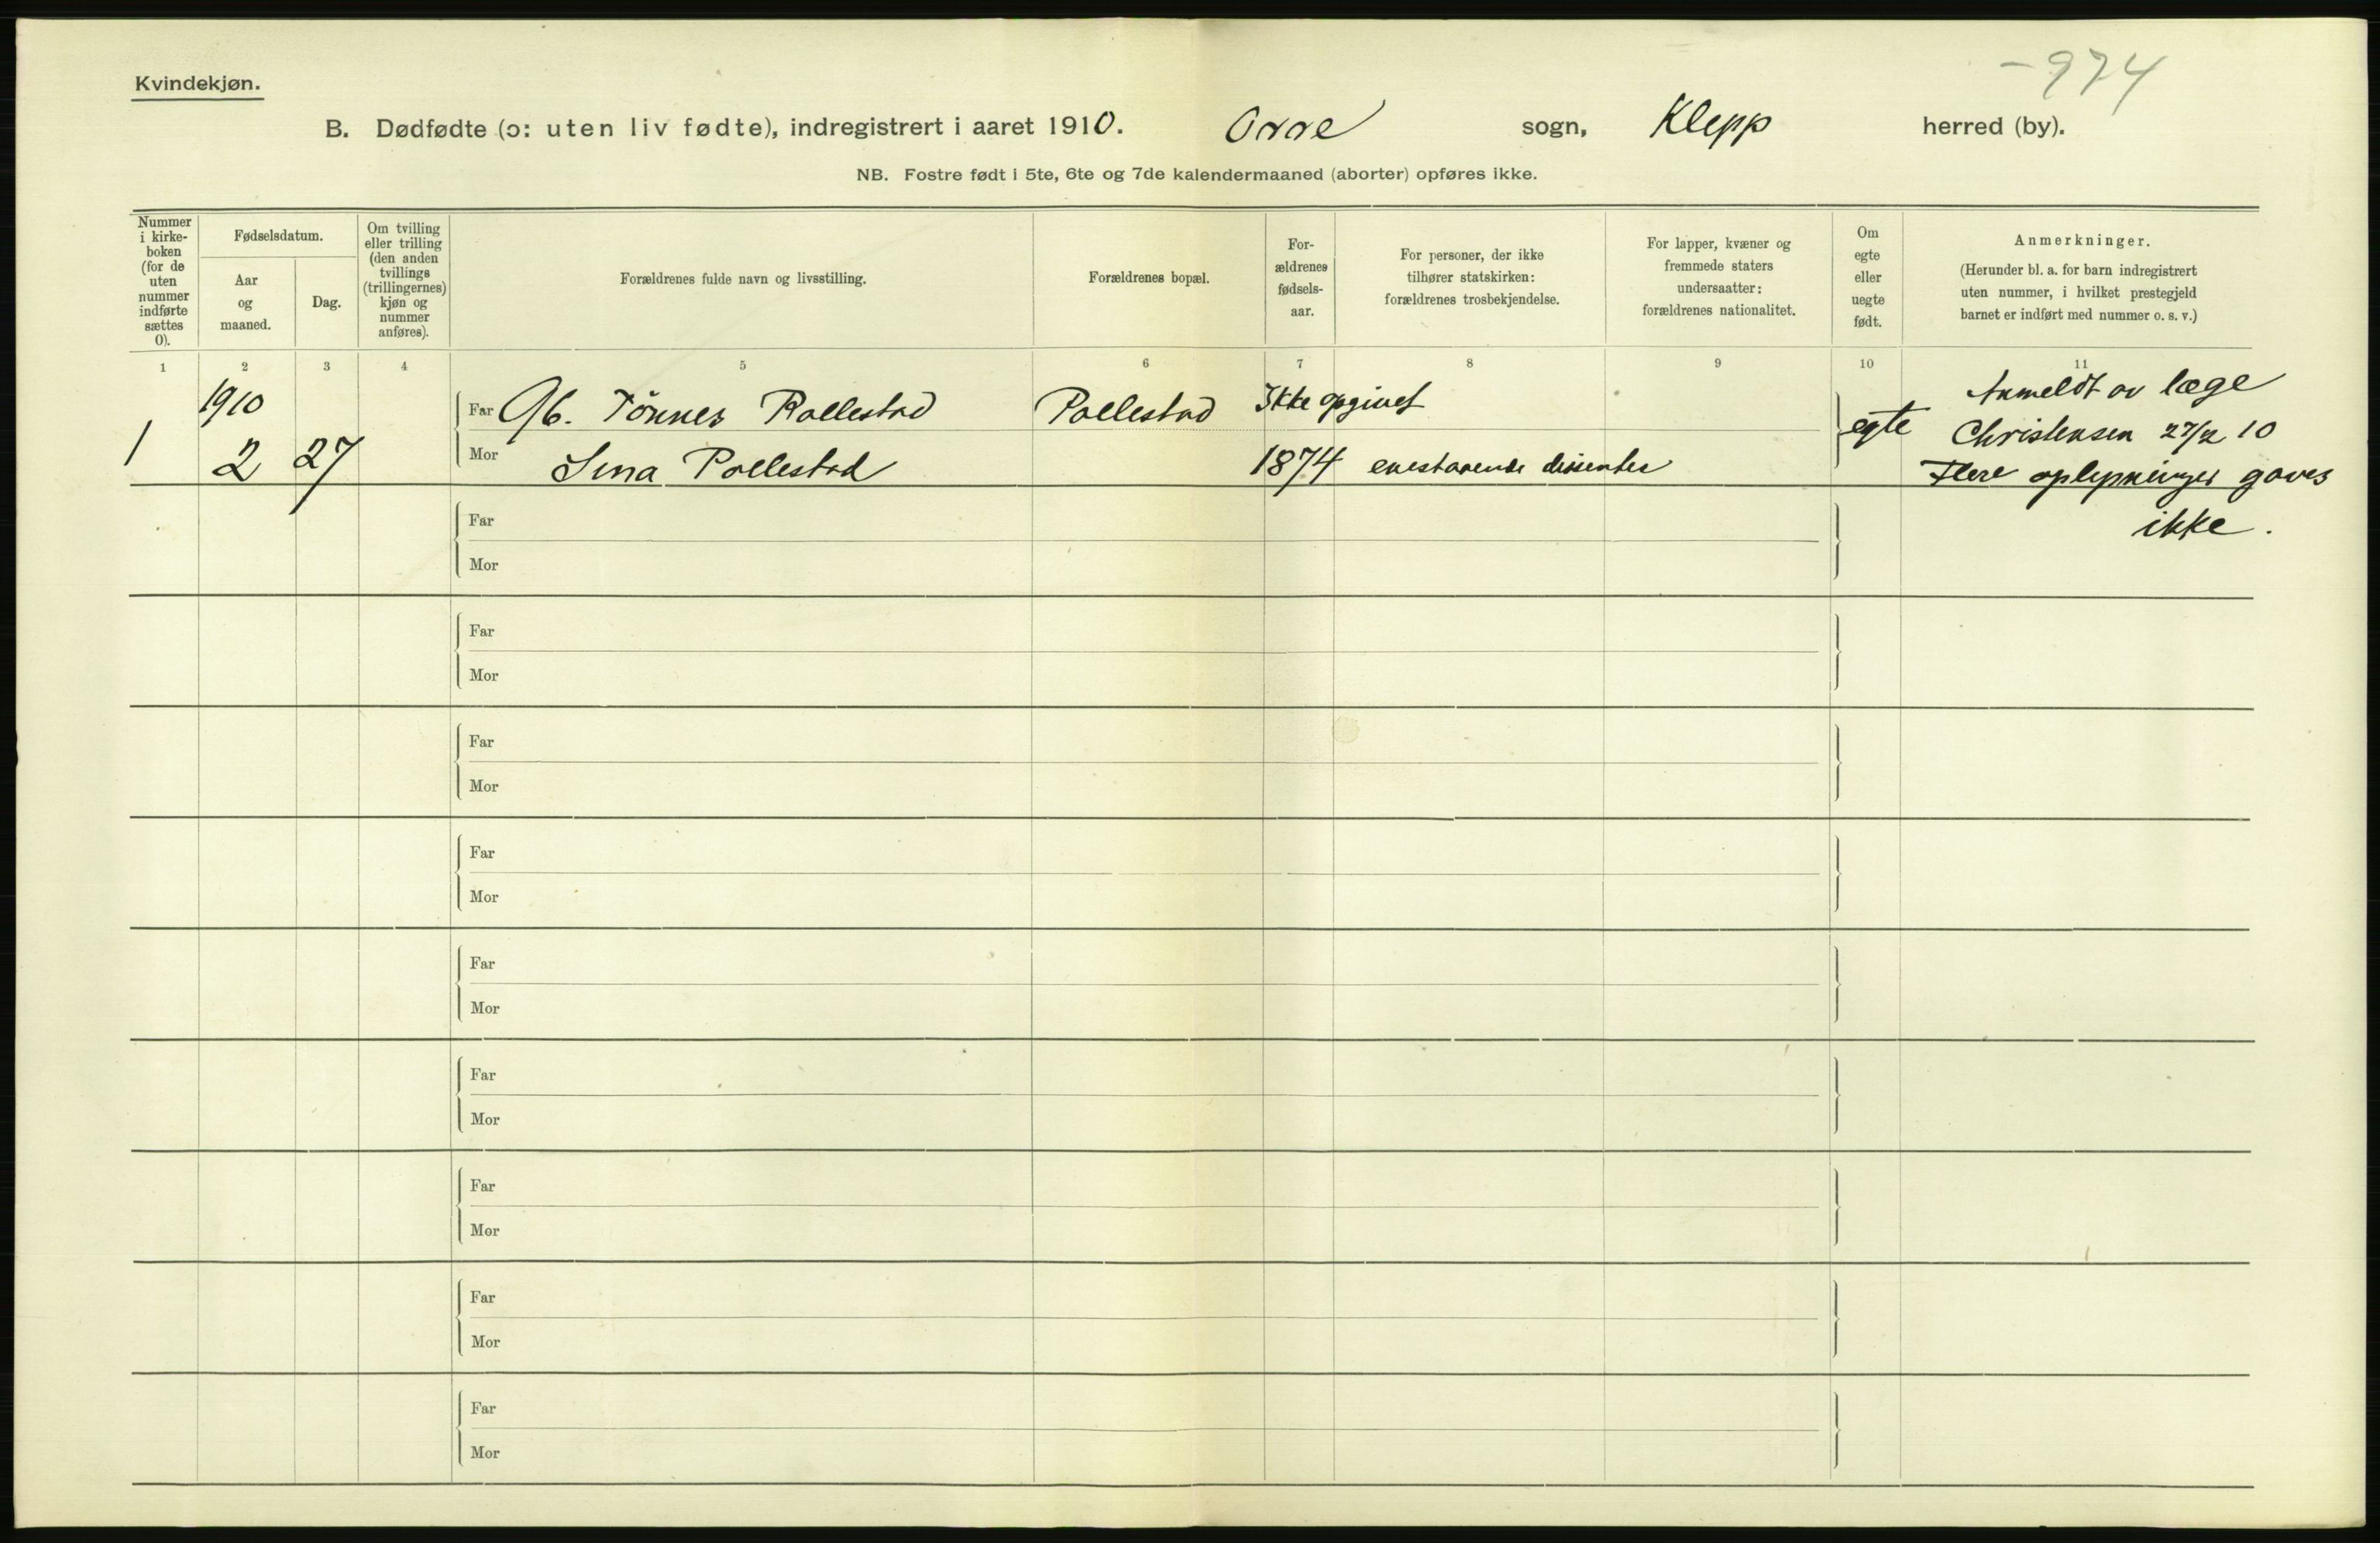 -974
Kvindekjøn.
B. Dødfødte (ɔ: uten liv fødte), indregistrert i aaret 1910. Orre sogn, Klepp herred (by).
NB. Fostre født i 5te, 6te og 7de kalendermaaned (aborter) opføres ikke.
Nummer i kirke- boken (for de uten nummer indførte sættes 0).
Fødselsdatum.
Aar og maaned.
Dag.
Om tvilling eller trilling (den anden tvillings (trillingernes) kjøn og nummer anføres).
Forældrenes fulde navn og livsstilling.
Forældrenes bopæl.
For- ældrenes fødsels- aar.
For personer, der ikke tilhører statskirken: forældrenes trosbekjendelse.
For lapper, kvæner og fremmede staters undersaatter: forældrenes nationalitet.
Om egte eller uegte født.
Anmerkninger.
(Herunder bl. a. for barn indregistrert uten nummer, i hvilket prestegjeld barnet er indført med nummer o. s. v.)
1 2 3 4 5 6 7 8 9 10 11
1910 Far Gb. Tönnes Pollestad Pollestad Ikke opgivet Anmeldt av læge
1 2 27 Mor Sina Pollestad 1874 enestaaende dissenter egte Christensen 27/2 10
Flere oplysninger gaves
ikke.
Far
Mor
Far
Mor
Far
Mor
Far
Mor
Far
Mor
Far
Mor
Far
Mor
Far
Mor
Far
Mor